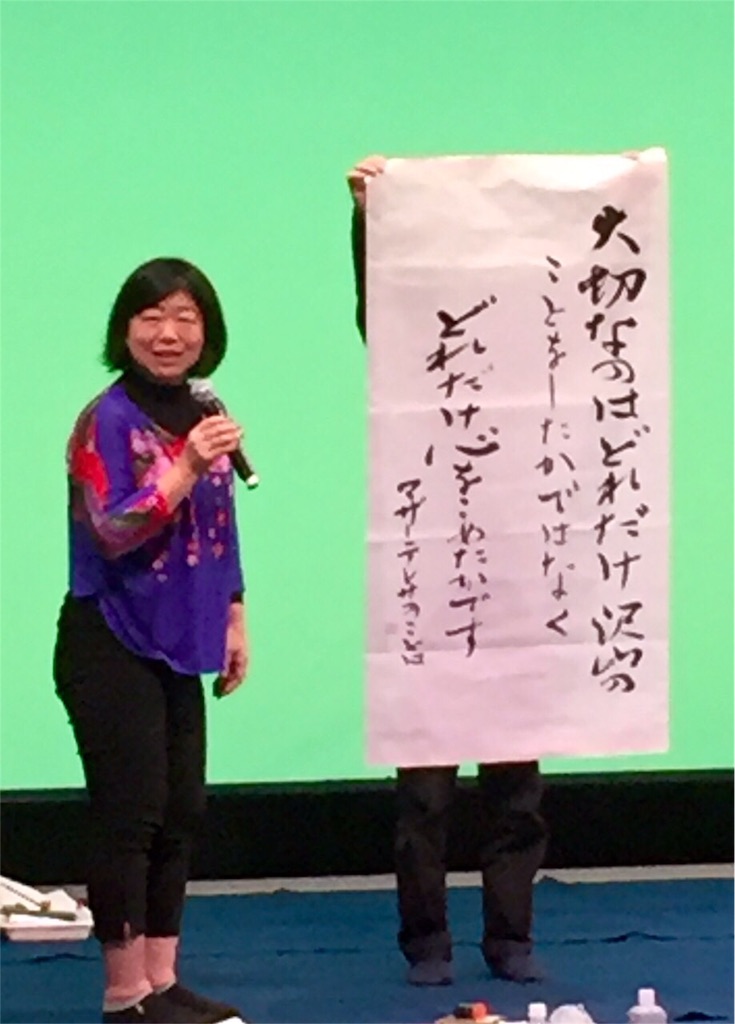 大切なのはどれだけ沢山の
ことをしたかではなく
どれだけ心をこめたかです
マザーテレサのことば